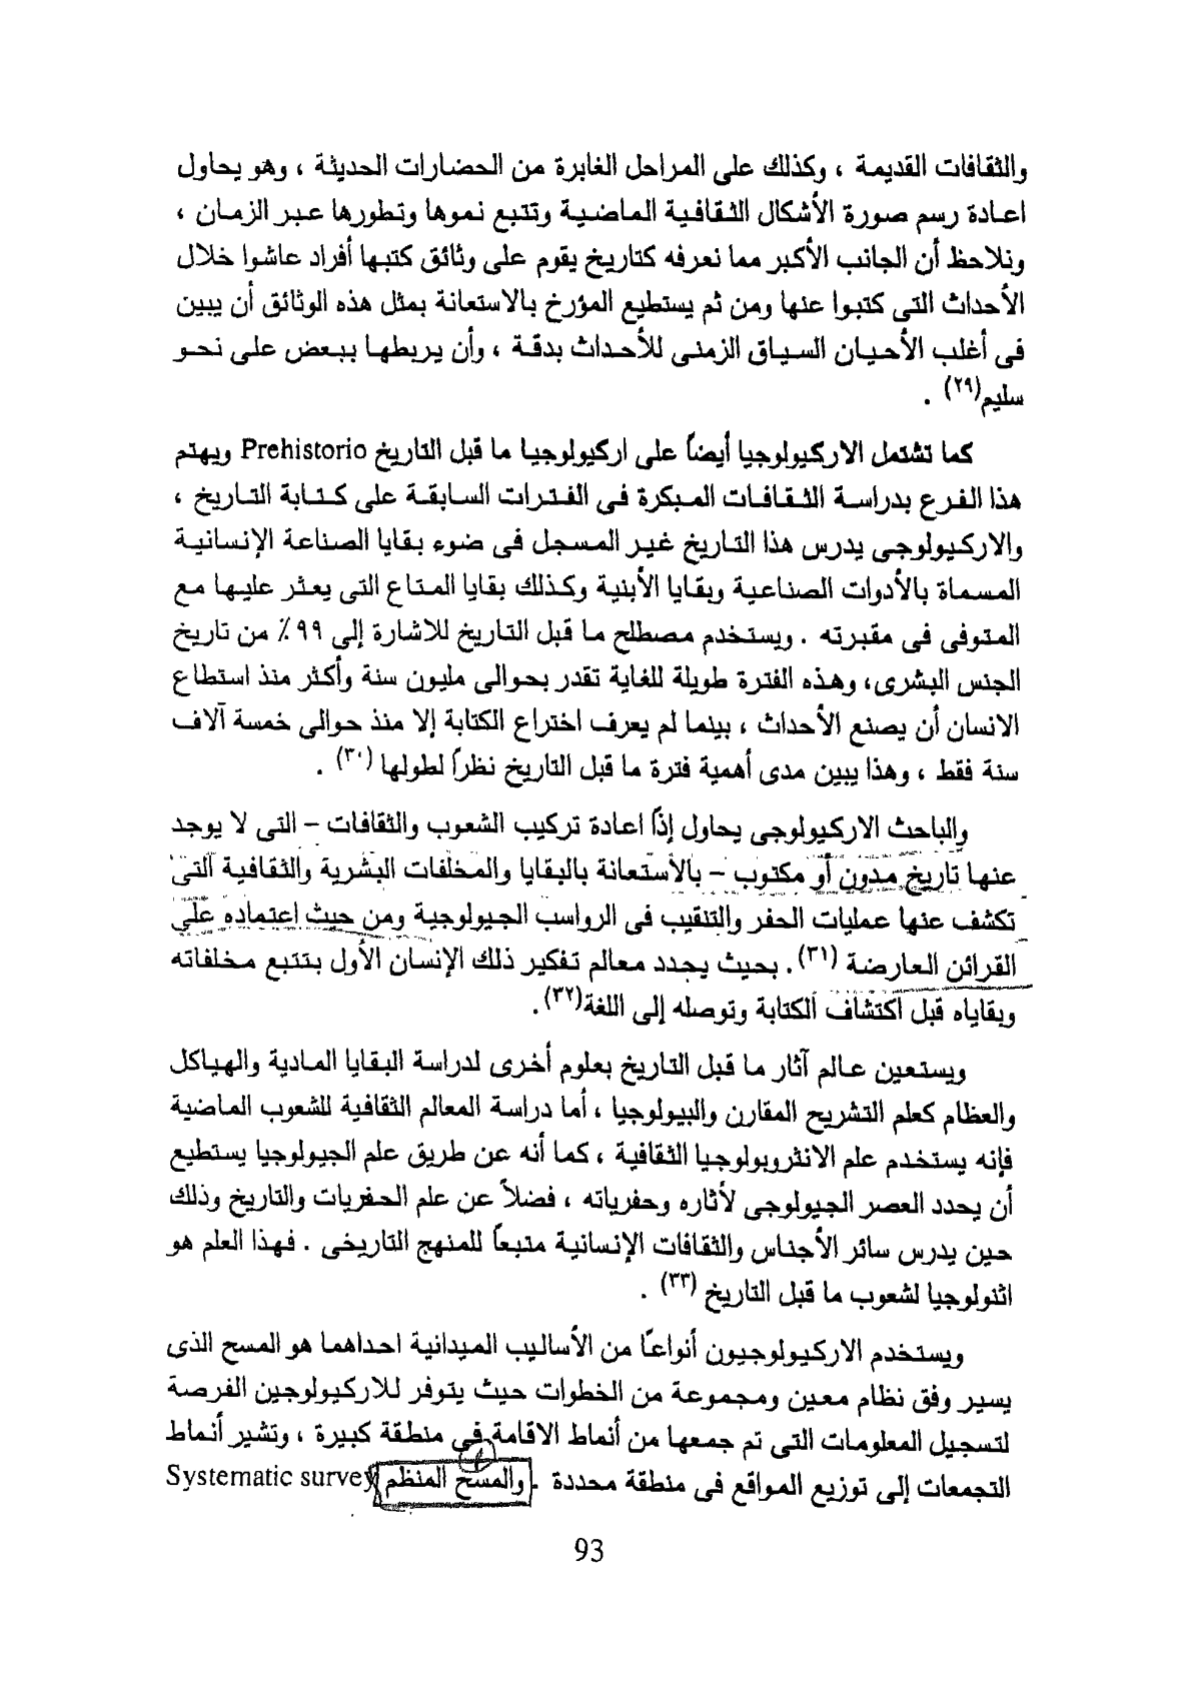 والثقافات القديمة ، وكذلك على المراحل الغابرة من الحضارات الحديثة ، وهو يحاول
اعادة رسم صورة الأشكال الثقافية الماضية وتتبع نموها وتطورها عبر الزمان ،
ونلاحظ أن الجانب الأكبر مما نعرفه كتاريخ يقوم على وثائق كتبها أفراد عاشوا خلال
الأحداث التى كتبوا عنها ومن ثم يستطيع المؤرخ بالاستعانة بمثل هذه الوثائق أن يبين
فى أغلب الأحيان السياق الزمنى للأحداث بدقة ، وأن يربطها ببعض على نحو
سليم(٢٩) .
كما تشتمل الاركيولوجيا أيضاً على اركيولوجيا ما قبل التاريخ Prehistorio ويهتم
هذا الفرع بدراسة الثقافات المبكرة فى الفترات السابقة على كتابة التاريخ ،
والاركيولوجى يدرس هذا التاريخ غير المسجل فى ضوء بقايا الصناعة الإنسانية
المسماة بالأدوات الصناعية وبقايا الأبنية وكذلك بقايا المتاع التى يعثر عليها مع
المتوفى فى مقبرته . ويستخدم مصطلح ما قبل التاريخ للاشارة إلى ٩٩٪ من تاريخ
الجنس البشرى، وهذه الفترة طويلة للغاية تقدر بحوالى مليون سنة وأكثر منذ استطاع
الانسان أن يصنع الأحداث ، بينما لم يعرف اختراع الكتابة إلا منذ حوالى خمسة آلاف
سنة فقط ، وهذا يبين مدى أهمية فترة ما قبل التاريخ نظراً لطولها (٣٠) .
والباحث الاركيولوجى يحاول إذاً اعادة تركيب الشعوب والثقافات – التى لا يوجد
عنها تاريخ مدون أو مكتوب – بالأستعانة بالبقايا والمخلفات البشرية والثقافية التى
تكشف عنها عمليات الحفر والتنقيب فى الرواسب الجيولوجية ومن حيث اعتماده على
القرائن العارضة (٣١). بحيث يحدد معالم تفكير ذلك الإنسان الأول بتتبع مخلفاته
وبقاياه قبل اكتشاف الكتابة وتوصله إلى اللغة(٣٢).
ويستعين عالم آثار ما قبل التاريخ بعلوم أخرى لدراسة البقايا المادية والهياكل
والعظام كعلم التشريح المقارن والبيولوجيا ، أما دراسة المعالم الثقافية للشعوب الماضية
فإنه يستخدم علم الانثروبولوجيا الثقافية ، كما أنه عن طريق علم الجيولوجيا يستطيع
أن يحدد العصر الجيولوجى لأثاره وحفرياته ، فضلاً عن علم الحفريات والتاريخ وذلك
حين يدرس سائر الأجناس والثقافات الإنسانية متبعاً للمنهج التاريخى . فهذا العلم هو
اثنولوجيا لشعوب ما قبل التاريخ (٣٣) .
ويستخدم الاركيولوجيون أنواعاً من الأساليب الميدانية احداهما هو المسح الذى
يسير وفق نظام معين ومجموعة من الخطوات حيث يتوفر للاركيولوجين الفرصة
لتسجيل المعلومات التى تم جمعها من أنماط الاقامة فى منطقة كبيرة ، وتشير أنماط
التجمعات إلى توزيع المواقع فى منطقة محددة . والمسح المنظم Systematic survey
93